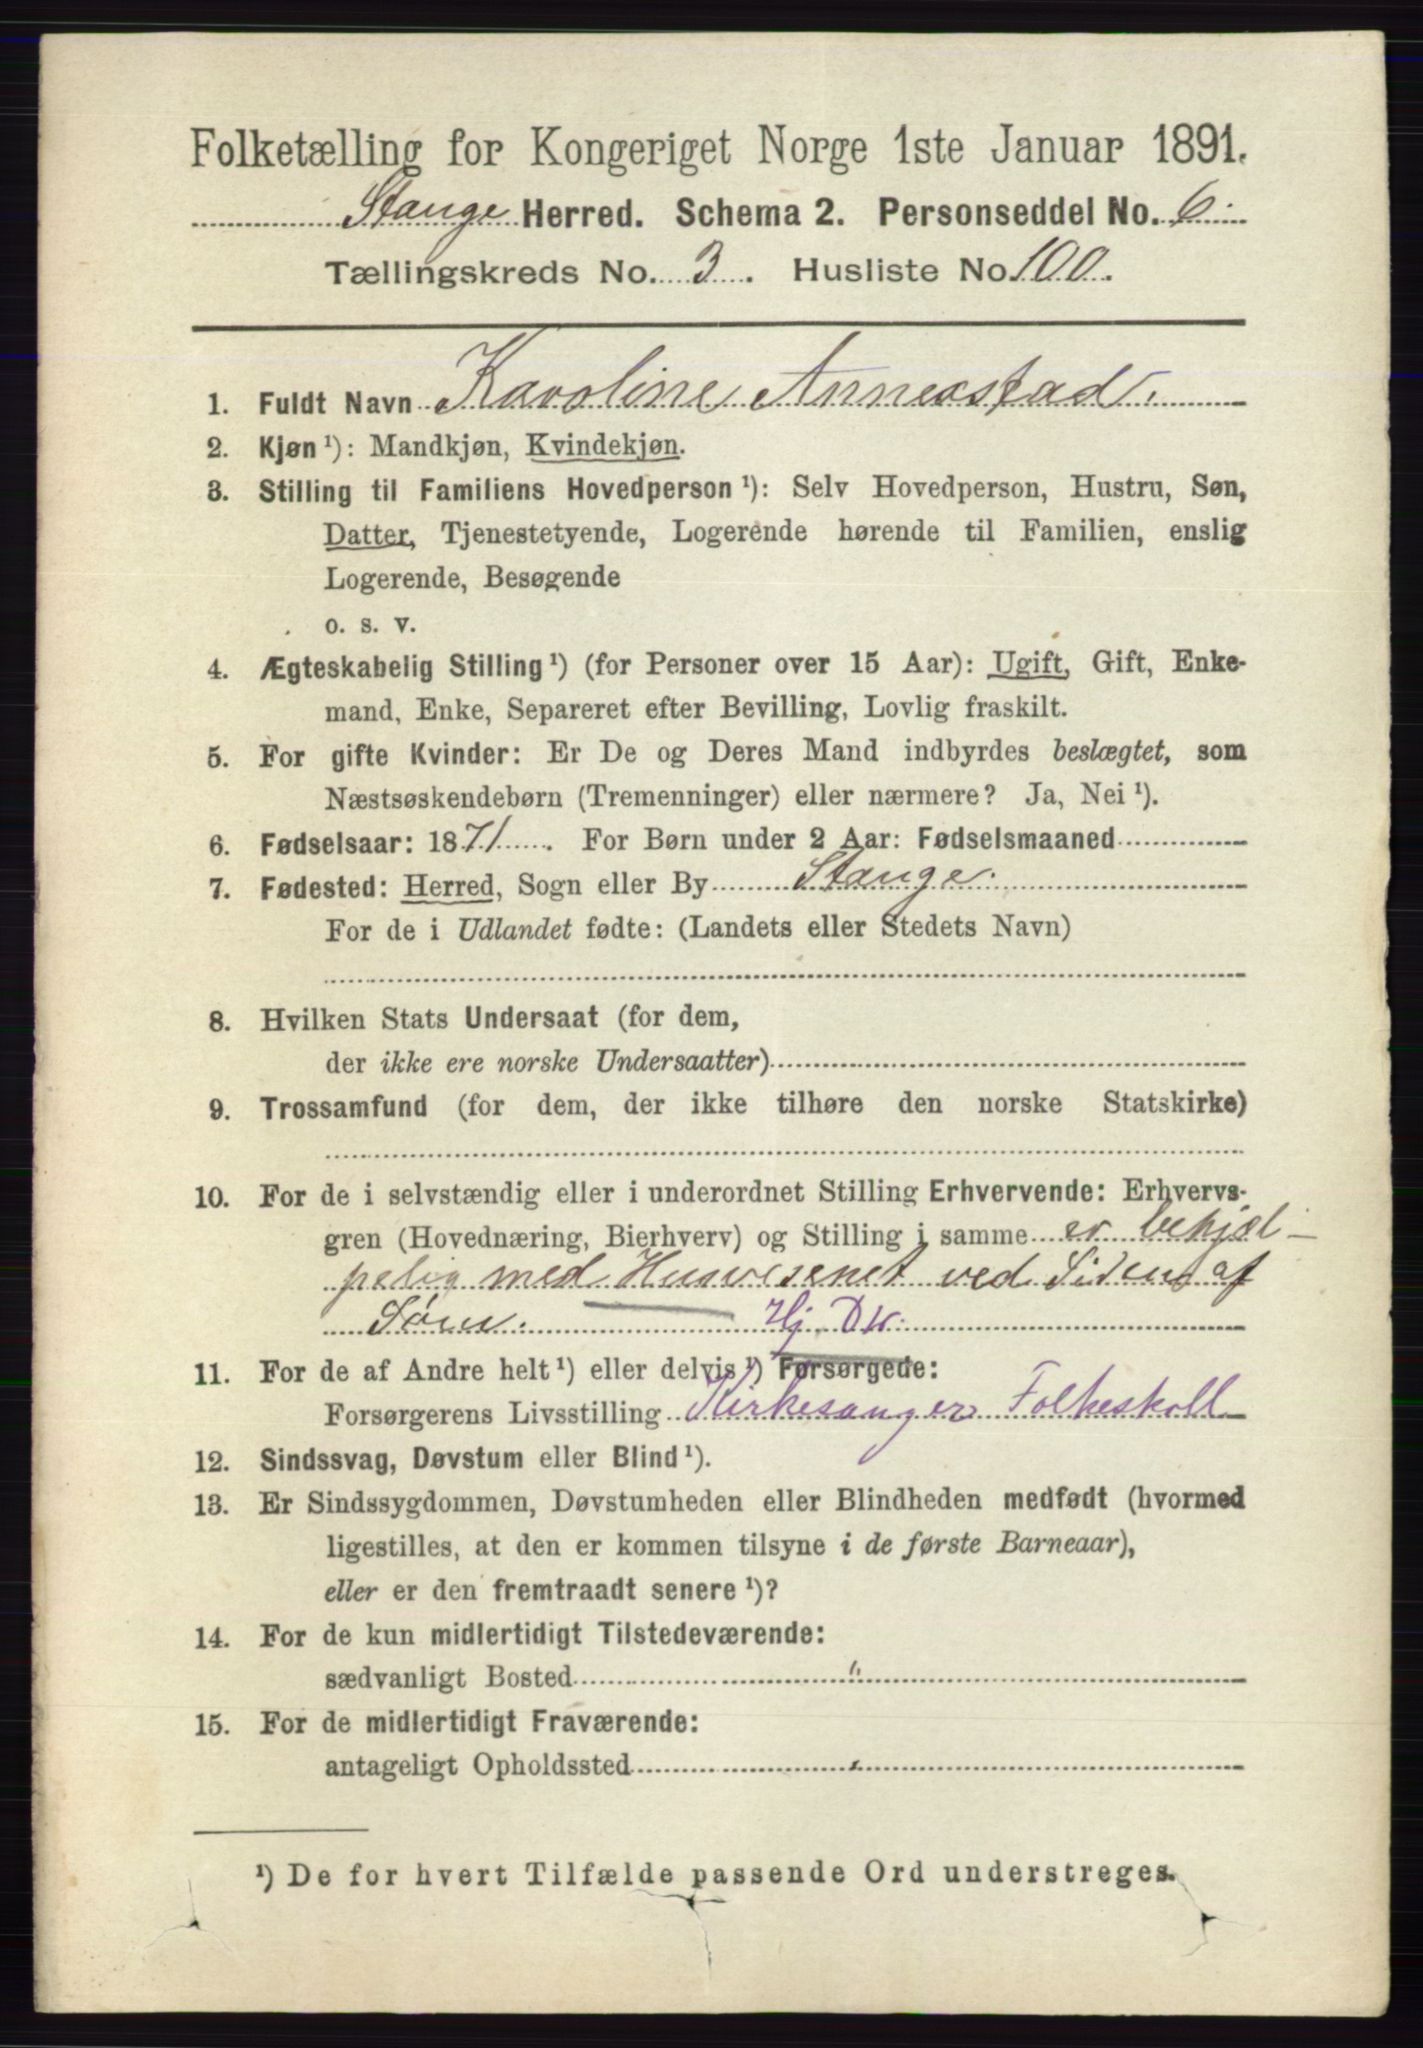 Folketælling for Kongeriget Norge 1ste Januar 1891.
Stange Herred. Schema 2. Personseddel No. 6
Tællingskreds No. 3. Husliste No 100.
1. Fuldt Navn Karoline Annexstad.
2. Kjøn ¹): Mandkjøn, Kvindekjøn.
3. Stilling til Familiens Hovedperson ¹): Selv Hovedperson, Hustru, Søn,
Datter, Tjenestetyende, Logerende hørende til Familien, enslig
Logerende, Besøgende
o. s. v.
4. Ægteskabelig Stilling ¹) (for Personer over 15 Aar): Ugift, Gift, Enke-
mand, Enke, Separeret efter Bevilling, Lovlig fraskilt.
5. For gifte Kvinder: Er De og Deres Mand indbyrdes beslægtet, som
Næstsøskendebørn (Tremenninger) eller nærmere? Ja, Nei ¹).
6. Fødselsaar: 1871. For Børn under 2 Aar: Fødselsmaaned
7. Fødested: Herred, Sogn eller By Stange.
For de i Udlandet fødte: (Landets eller Stedets Navn)
8. Hvilken Stats Undersaat (for dem,
der ikke ere norske Undersaatter)
9. Trossamfund (for dem, der ikke tilhøre den norske Statskirke)
10. For de i selvstændig eller i underordnet Stilling Erhvervende: Erhvervs-
gren (Hovednæring, Bierhverv) og Stilling i samme er behjæl-
pelig med Husvæsenet ved Siden af
Søm. Hj Dv.
11. For de af Andre helt ¹) eller delvis ¹) Forsørgede:
Forsørgerens Livsstilling Kirkesanger Folkeskoll
12. Sindssvag, Døvstum eller Blind ¹).
13. Er Sindssygdommen, Døvstumheden eller Blindheden medfødt (hvormed
ligestilles, at den er kommen tilsyne i de første Barneaar),
eller er den fremtraadt senere ¹)?
14. For de kun midlertidigt Tilstedeværende:
sædvanligt Bosted "
15. For de midlertidigt Fraværende:
antageligt Opholdssted
¹) De for hvert Tilfælde passende Ord understreges.